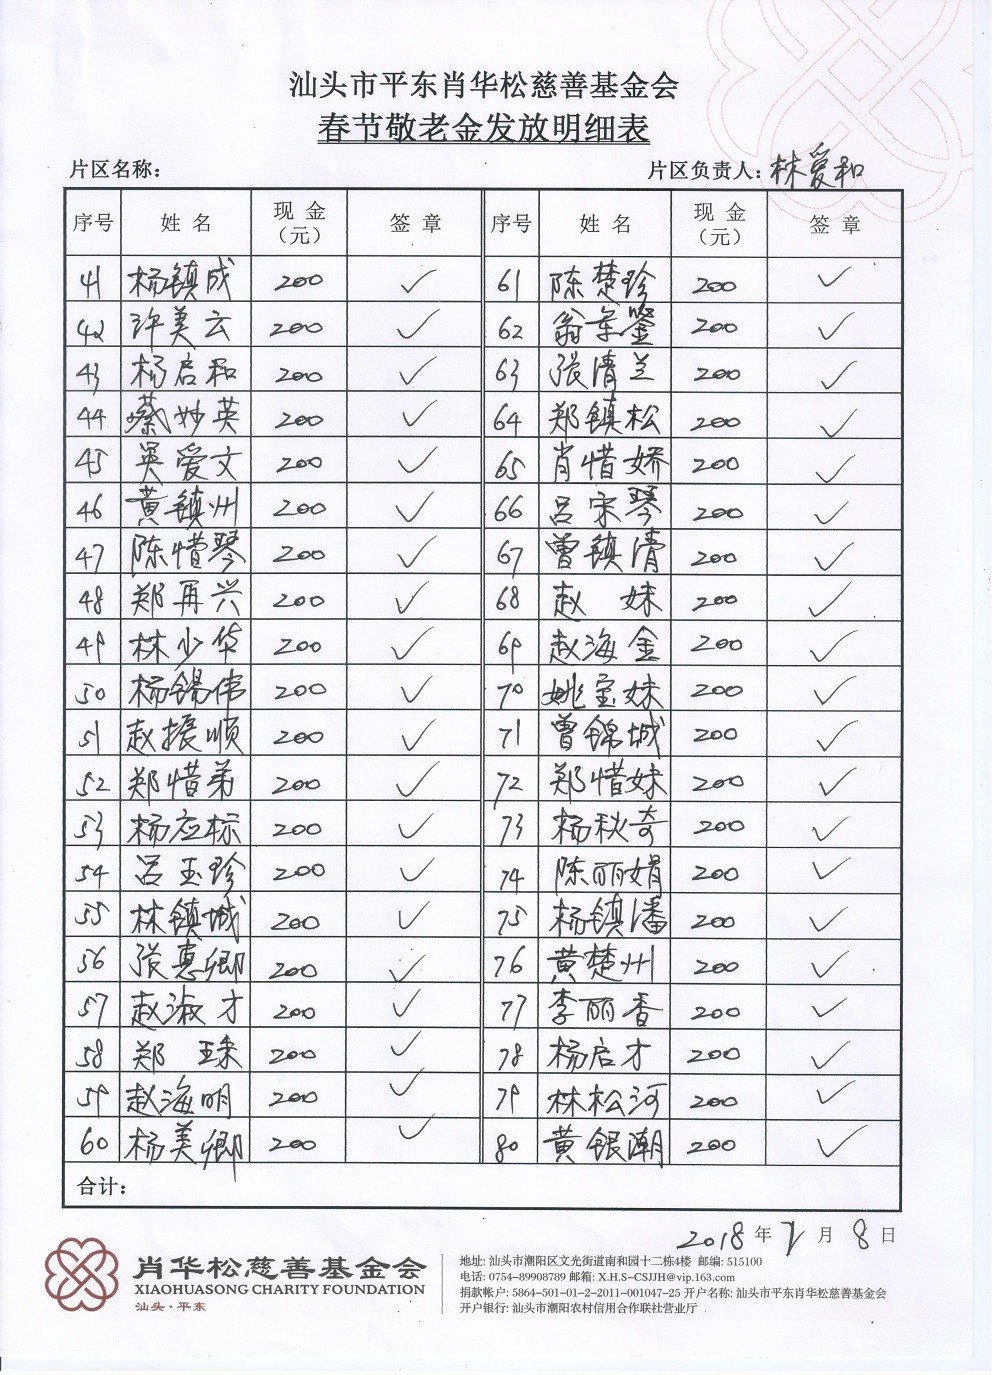 汕头市平东肖华松慈善基金会
春节敬老金发放明细表
片区名称： 片区负责人：林爱和
序号 姓名 现金（元） 签章 序号 姓名 现金（元） 签章
41 杨镇成 200 ✓ 61 陈楚珍 200 ✓
42 许美云 200 ✓ 62 翁 200 ✓
43 杨启和 200 ✓ 63 张清兰 200 ✓
44 蔡妙英 200 ✓ 64 郑镇松 200 ✓
45 吴爱文 200 ✓ 65 肖惜娇 200 ✓
46 黄镇州 200 ✓ 66 吕宋琴 200 ✓
47 陈惜琴 200 ✓ 67 曾镇清 200 ✓
48 郑再兴 200 ✓ 68 赵妹 200 ✓
49 林少华 200 ✓ 69 赵海金 200 ✓
50 杨锡伟 200 ✓ 70 姚宝妹 200 ✓
51 赵振顺 200 ✓ 71 曾锦城 200 ✓
52 郑惜弟 200 ✓ 72 郑惜妹 200 ✓
53 杨应标 200 ✓ 73 杨秋奇 200 ✓
54 吕玉珍 200 ✓ 74 陈丽娟 200 ✓
55 林镇城 200 ✓ 75 杨镇潘 200 ✓
56 张惠卿 200 ✓ 76 黄楚州 200 ✓
57 赵淑才 200 ✓ 77 李丽香 200 ✓
58 郑 200 ✓ 78 杨启才 200 ✓
59 赵海明 200 ✓ 79 林松河 200 ✓
60 杨美卿 200 ✓ 80 黄银潮 200 ✓
合计：
2018年2月8日
肖华松慈善基金会
XIAOHUASONG CHARITY FOUNDATION
汕头·平东
地址: 汕头市潮阳区文光街道南和园十二栋4楼 邮编: 515100
电话: 0754-89908789 邮箱: X.H.S-CSJJH@vip.163.com
捐款帐户: 5864-501-01-2-2011-001047-25 开户名称: 汕头市平东肖华松慈善基金会
开户银行: 汕头市潮阳农村信用合作联社营业厅